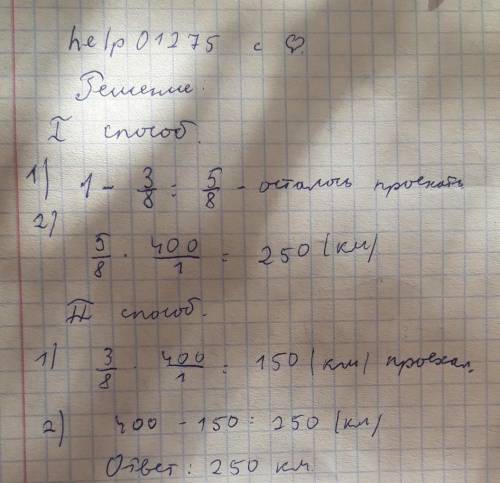 help 01275 с ♡.
Решение.
I способ.
1) 1 - 3/8 = 5/8 - осталось проехать
2)
5/8 · 400/1 = 250 (км)
II способ.
1) 3/8 · 400/1 = 150 (км) проехал.
2) 400 - 150 = 250 (км)
Ответ: 250 км